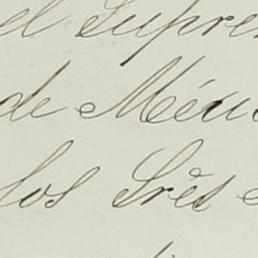 el Suprem
de Méxic
los Srẽs e